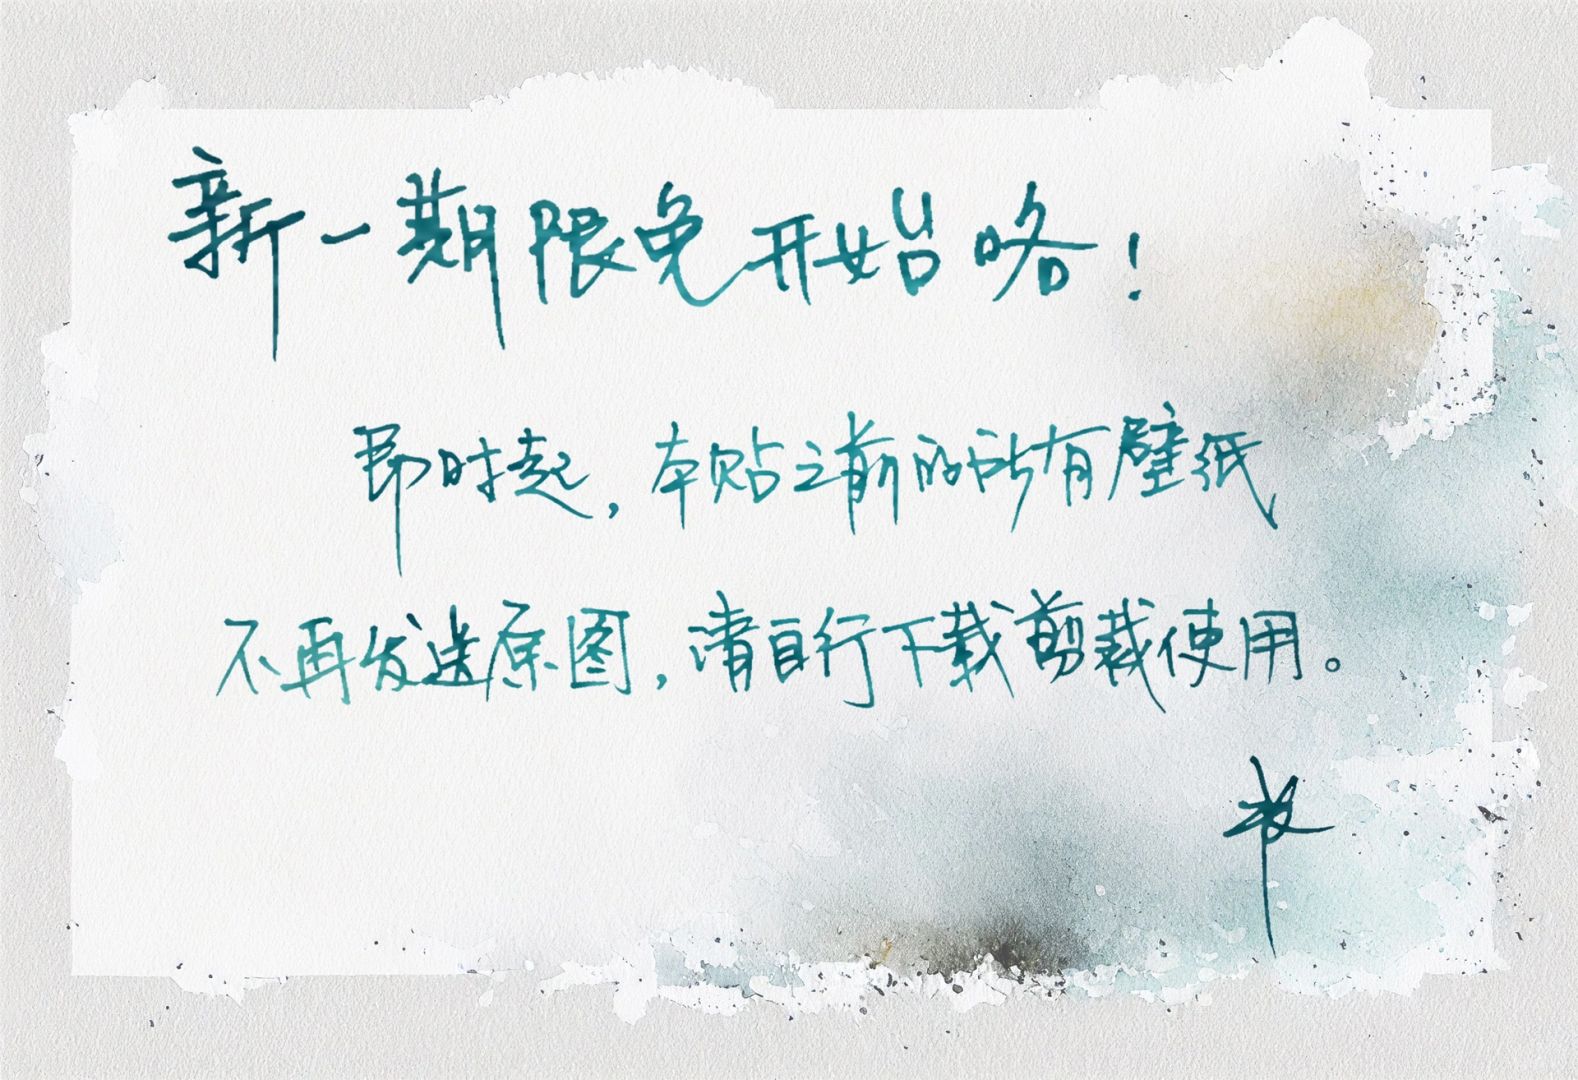 新一期限免开始咯！
即时起，本贴之前的所有壁纸
不再发送原图，请自行下载剪裁使用。